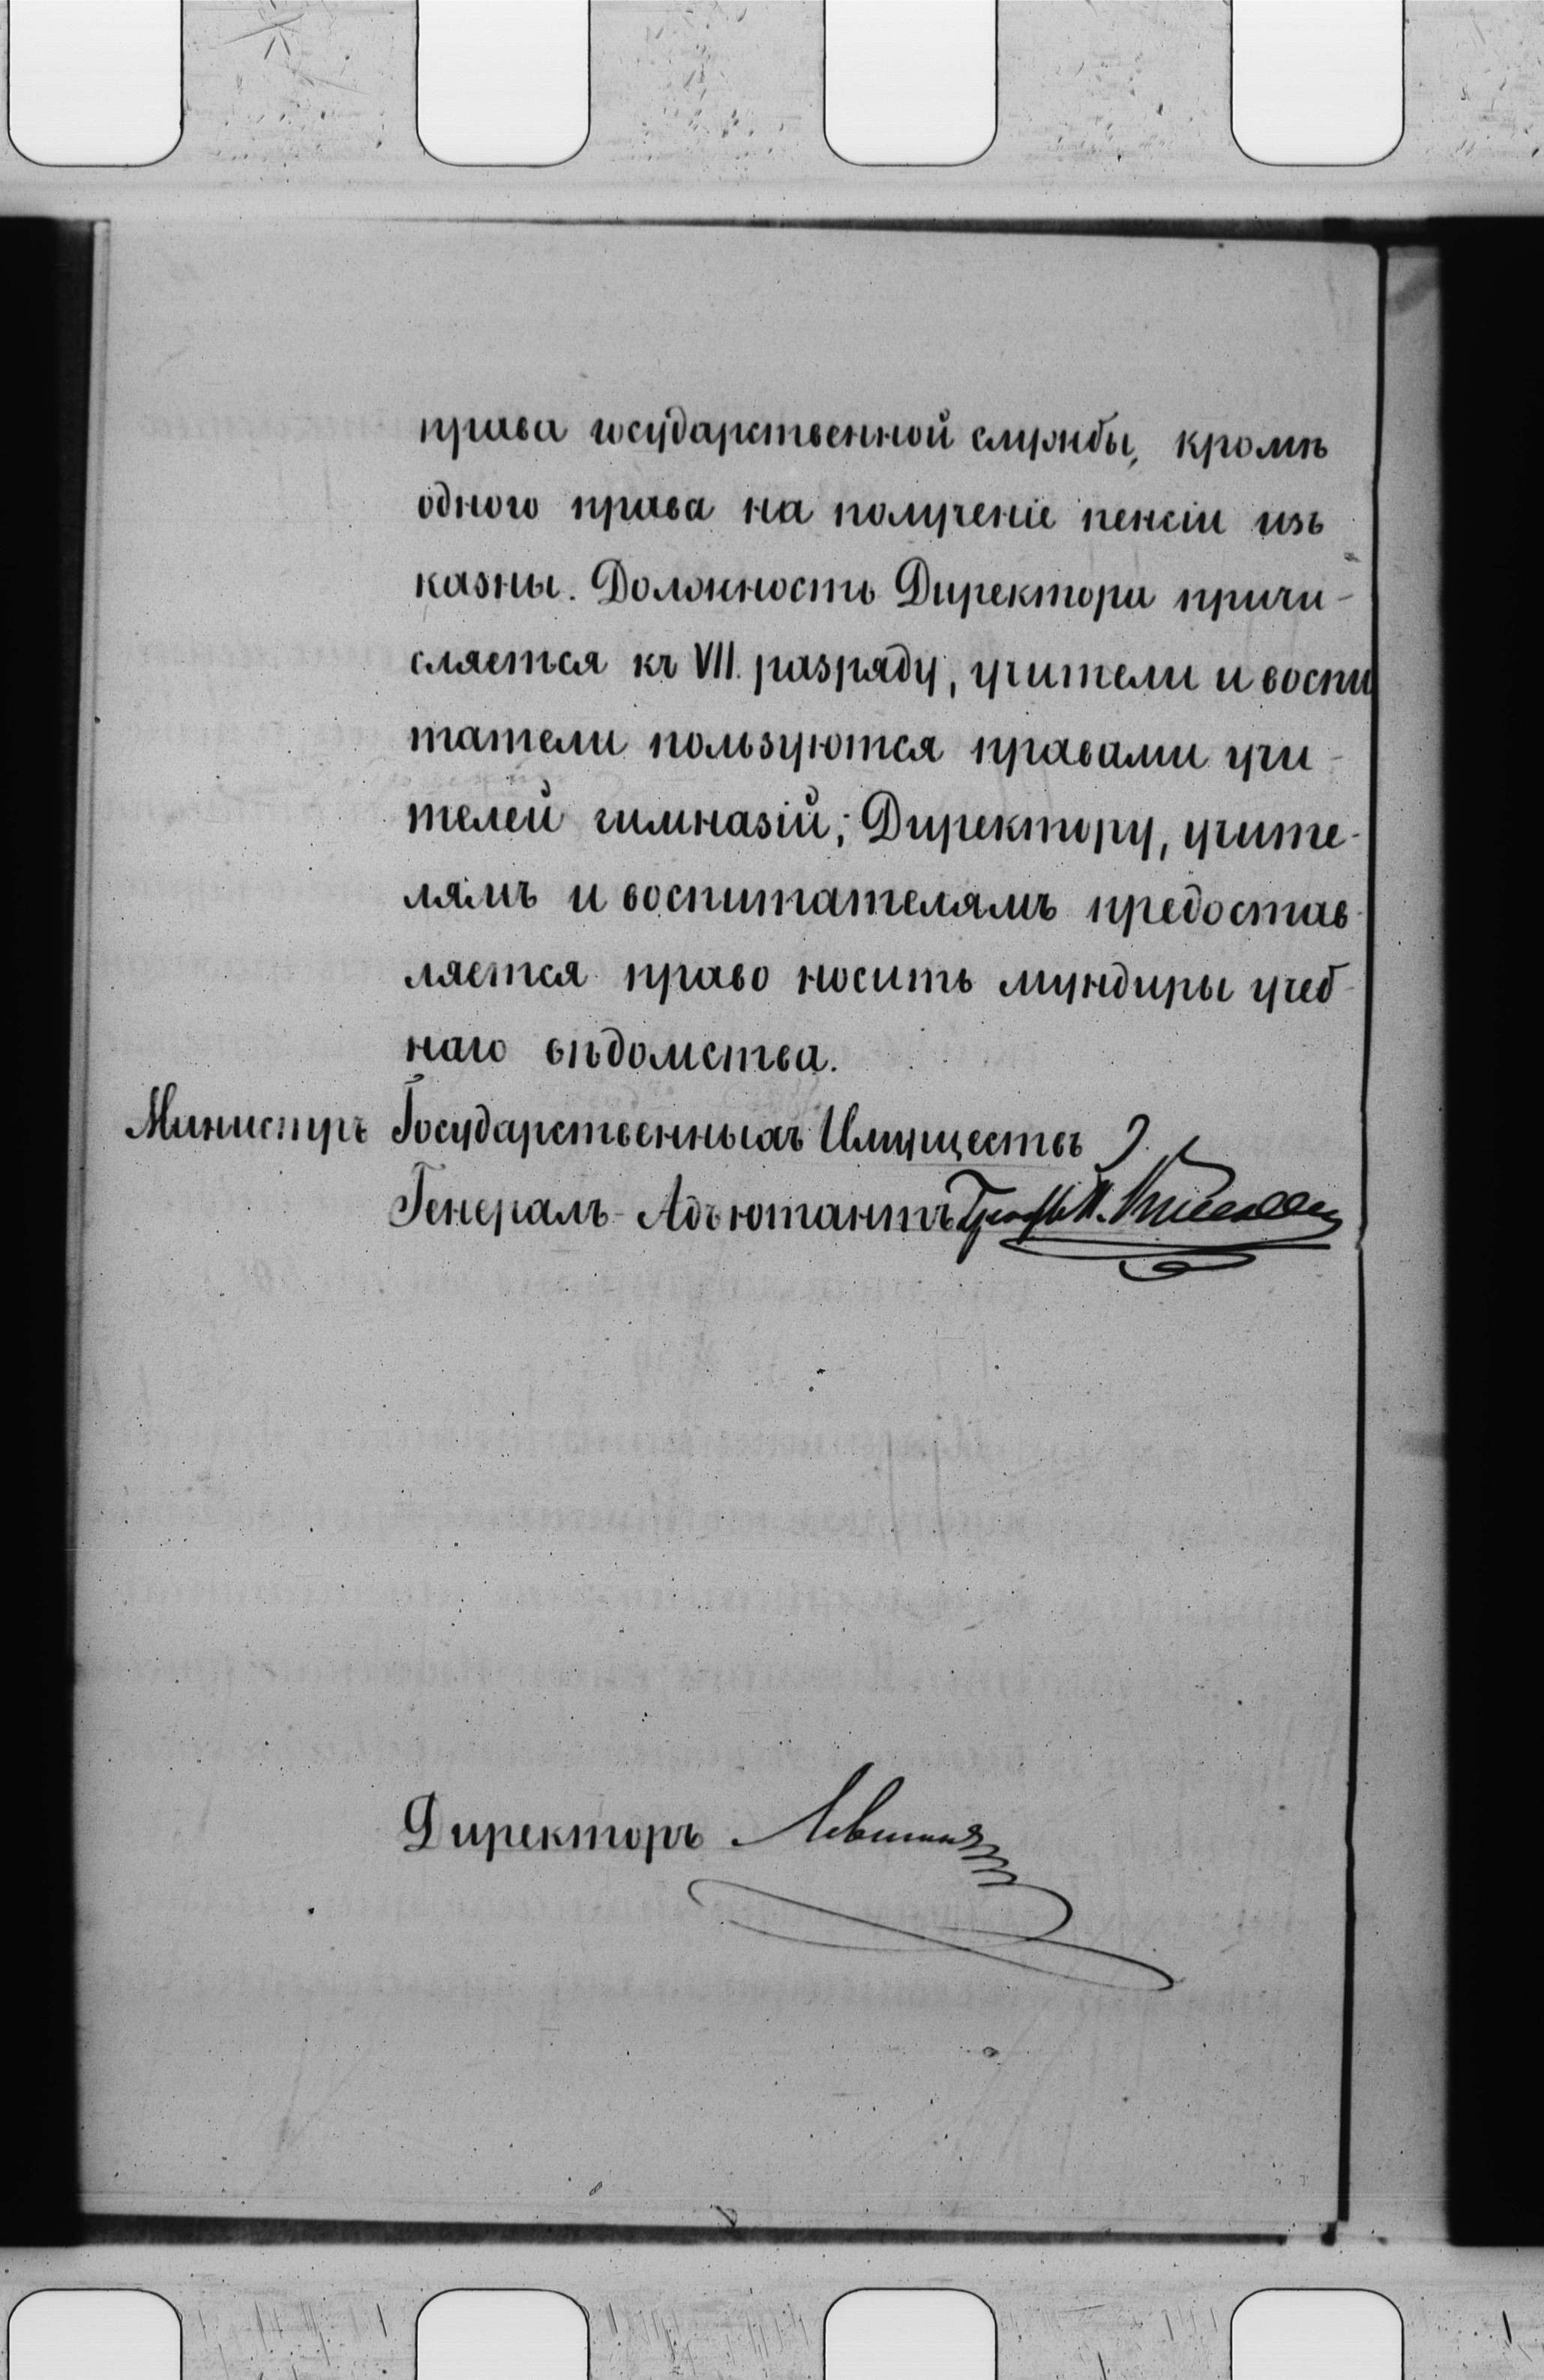 права государственной службы, кромѣ
одного права на полученіе пенсіи изъ
казны. Должность Директора причи-
сляется къ VII. разряду, учители и воспи
татели пользуются правами учи-
телей гимназій; Директору, учите-
лямъ и воспитателямъ предостав-
ляется право носить мундиры учеб-
наго вѣдомства.
Министръ Государственныхъ Имуществъ
Генералъ-Адъютантъ Графъ П. Киселевъ
Директоръ Левшинъ